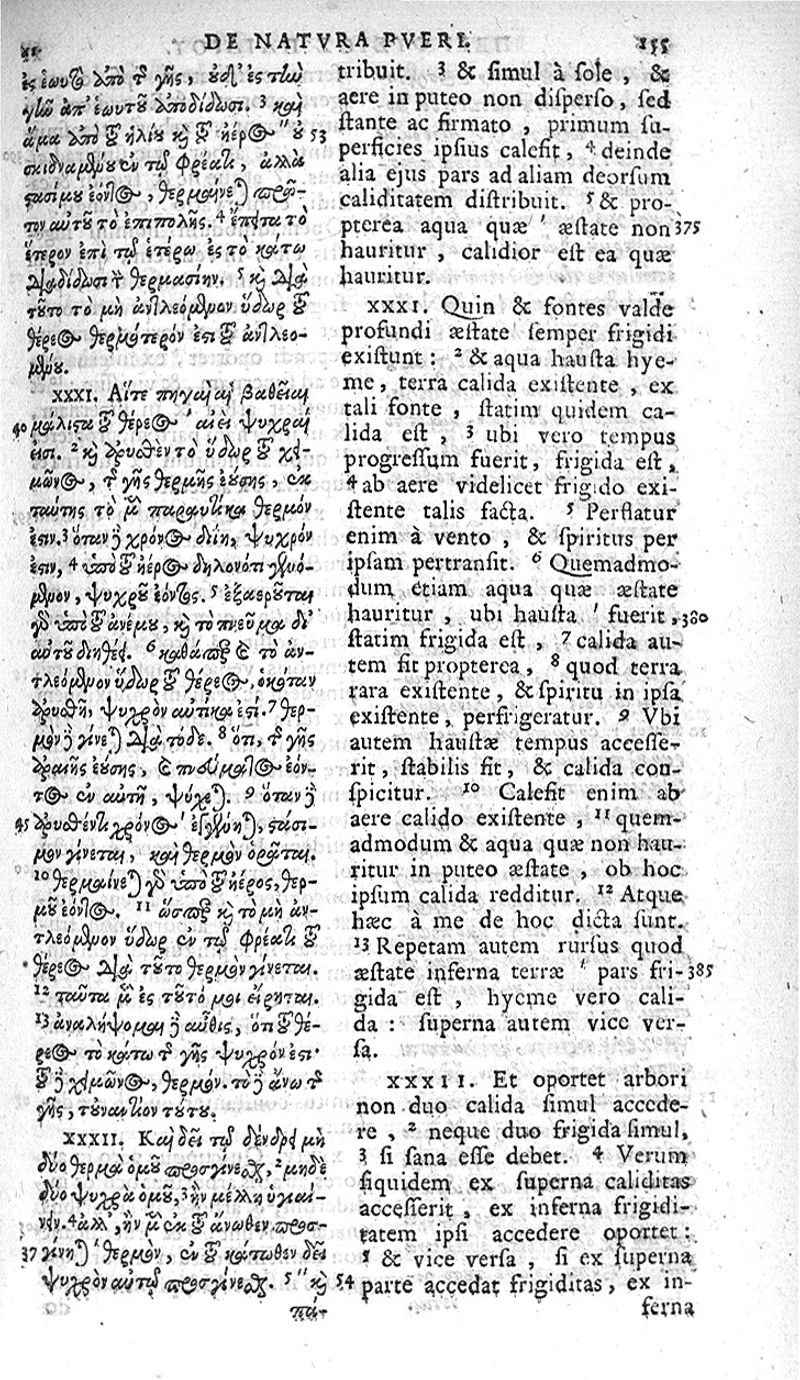 DE NATVRA PVERI. 155
ἐς ἑωυτὸ ἀπὸ τῆς γῆς, οὐδ' ἐς τὴν
γῆν ἀπ' ἑωυτοῦ ἀποδίδωσι. ³ καὶ
ἅμα ἀπὸ τοῦ ἡλίου κỳ τοῦ ἠέρος " οὐ 53
σκιδναμένου ἐν τῷ φρέατι, ἀλλὰ
στασίμου ἐόντος, θερμαίνεται πρῶ-
τον αὐτοῦ τὸ ἐπιπολῆς. ⁴ ἔπειτα τὸ
ἕτερον ἐπὶ τῷ ἑτέρῳ ἐς τὸ κάτω
διαδίδωσι τὴν θερμασίην. ⁵ κỳ διὰ
τοῦτο τὸ μὴ ἀντλεόμενον ὕδωρ τοῦ
θέρεος θερμότερόν ἐστι τοῦ ἀντλεο-
μένου.
XXXI. Αἵτε πηγαὶ αἱ βαθεῖαι
40 μάλιστα τοῦ θέρεος ' αἰεὶ ψυχραί
εἰσι. ² κỳ ἀρυσθὲν τὸ ὕδωρ τοῦ χει-
μῶνος, τῆς γῆς θερμῆς ἐούσης, ἐκ
ταύτης τὸ μὲν παραυτίκα θερμόν
ἐστιν. ³ ὅταν δὲ χρόνος διίῃ, ψυχρόν
ἐστιν, ⁴ ὑπὸ τοῦ ἠέρος δηλονότι γενό-
μενον, ψυχροῦ ἐόντος. ⁵ ἐξαεροῦται
γὰρ ὑπὸ τοῦ ἀνέμου, κỳ τὸ πνεῦμα δι'
αὐτοῦ διηθέει. ⁶ καθάπερ καὶ τὸ ἀν-
τλεόμενον ὕδωρ τοῦ θέρεος, ὁκόταν
ἀρυσθῇ, ψυχρὸν αὐτίκα ἐστί. ⁷ θερ-
μὸν δὲ γίνεται διὰ τόδε. ⁸ ὅτι, τῆς γῆς
ἀραιῆς ἐούσης, καὶ πνεύματος ἐόν-
τος ἐν αὐτῇ, ψύχεται. ⁹ ὅταν δὲ
45 ἀρυσθέντι χρόνος ' ἐγγένηται, στάσι-
μον γίνεται, καὶ θερμὸν ὁρᾶται.
¹⁰ θερμαίνεται γὰρ ὑπὸ τοῦ ἠέρος, θερ-
μοῦ ἐόντος. ¹¹ ὥσπερ κỳ τὸ μὴ ἀν-
τλεόμενον ὕδωρ ἐν τῷ φρέατι τοῦ
θέρεος διὰ τοῦτο θερμὸν γίνεται.
¹² ταῦτα μὲν ἐς τοῦτό μοι εἴρηται.
¹³ ἀναλήψομαι δὲ αὖθις, ὅτι τοῦ θέ-
ρεος τὸ κάτω τῆς γῆς ψυχρόν ἐστι·
τοῦ δὲ χειμῶνος, θερμόν. τὸ δὲ ἄνω τῆς
γῆς, τοὐναντίον τούτου.
XXXII. Καὶ δεῖ τῷ δένδρει μὴ
δύο θερμὰ ὁμοῦ προσγίνεσθαι, ² μηδὲ
δύο ψυχρὰ ὁμοῦ, ³ ἢν μέλλῃ ὑγιαί-
νειν. ⁴ ἀλλ', ἢν μὲν ἐκ τοῦ ἄνωθεν προσ-
37 γίνηται ' θερμὸν, ἐκ τοῦ κάτωθεν δεῖ
ψυχρὸν αὐτῷ προσγίνεσθαι. ⁵ " κỳ 54
πά-
tribuit. ³ & simul à sole, &
aere in puteo non disperso, sed
stante ac firmato, primum su-
perficies ipsius calefit, ⁴ deinde
alia ejus pars ad aliam deorsum
caliditatem distribuit. ⁵ & pro-
pterea aqua quæ ' æstate non 375
hauritur, calidior est ea quæ
hauritur.
XXXI. Quin & fontes valde
profundi æstate semper frigidi
existunt: ² & aqua hausta hye-
me, terra calida existente, ex
tali fonte, statim quidem ca-
lida est, ³ ubi vero tempus
progressum fuerit, frigida est,
⁴ ab aere videlicet frigido exi-
stente talis facta. ⁵ Perflatur
enim à vento, & spiritus per
ipsam pertransit. ⁶ Quemadmo-
dum etiam aqua quæ æstate
hauritur, ubi hausta ' fuerit, 380
statim frigida est, ⁷ calida au-
tem fit propterea, ⁸ quod terra
rara existente, & spiritu in ipsa
existente, perfrigeratur. ⁹ Vbi
autem haustæ tempus accesse-
rit, stabilis fit, & calida con-
spicitur. ¹⁰ Calefit enim ab
aere calido existente, ¹¹ quem-
admodum & aqua quæ non hau-
ritur in puteo æstate, ob hoc
ipsum calida redditur. ¹² Atque
hæc à me de hoc dicta sunt.
¹³ Repetam autem rursus quod
æstate inferna terræ ' pars fri- 385
gida est, hyeme vero cali-
da: superna autem vice ver-
sa.
XXXII. Et oportet arbori
non duo calida simul accede-
re, ² neque duo frigida simul,
³ si sana esse debet. ⁴ Verum
siquidem ex superna caliditas
accesserit, ex inferna frigidi-
tatem ipsi accedere oportet:
⁵ & vice versa, si ex superna
parte accedat frigiditas, ex in-
ferna